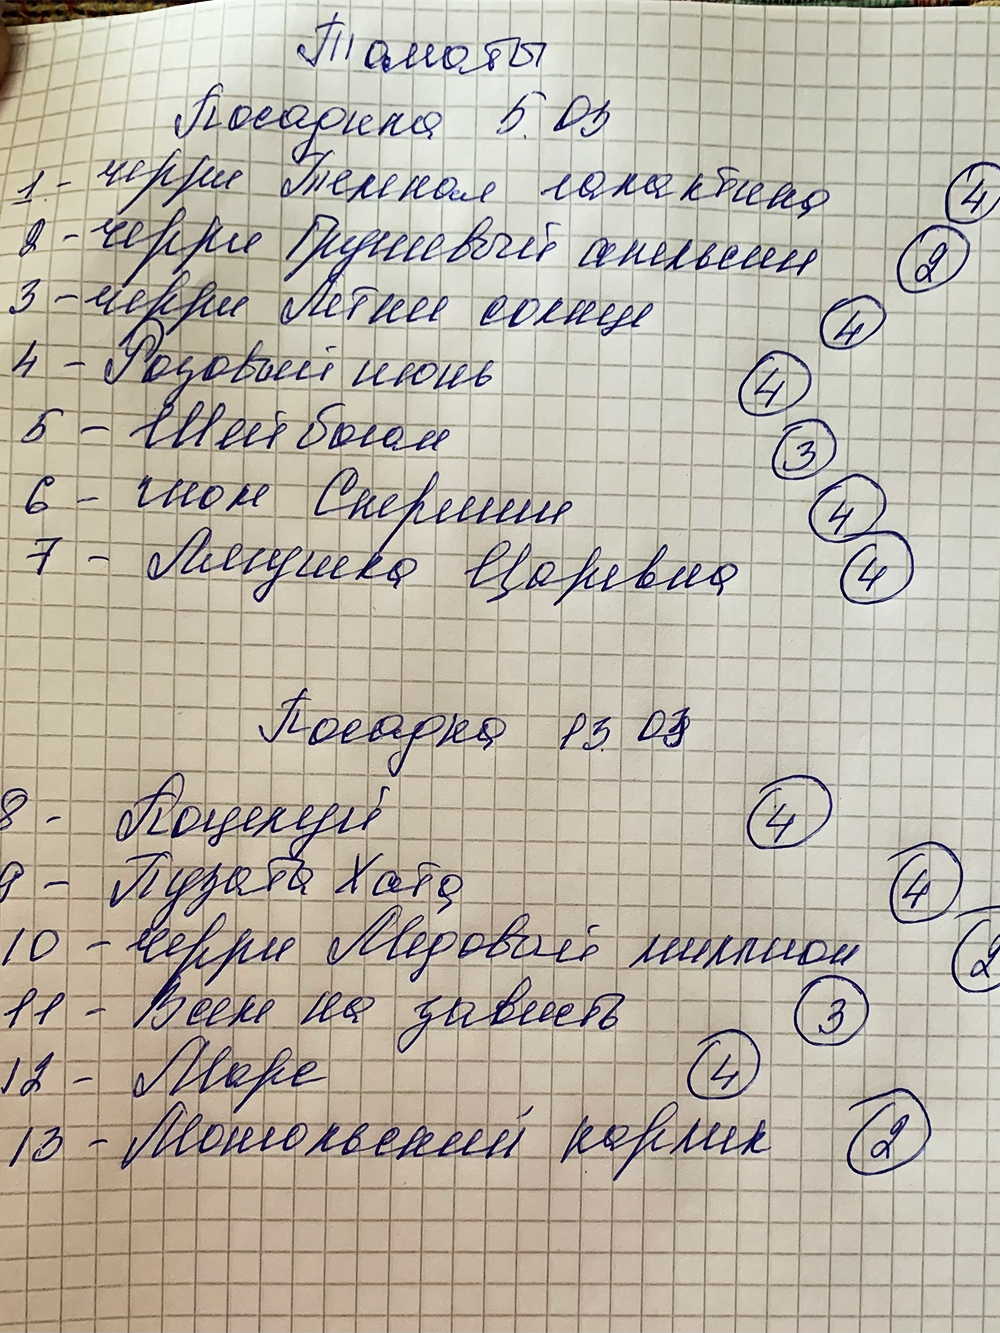 Томаты
Посадка 5.03
1 - черри Темная галактика 4
2 - черри Грушевый апельсин 2
3 - черри Летнее солнце 4
4 - Розовый июнь 4
5 - Шейбогат 3
6 - гном Скерлин 4
7 - Лягушка Царевна 4
Посадка 13.03
8 - Поцелуй 4
9 - Пузата Хата 4
10 - черри Медовый миллион 2
11 - Всем на зависть 3
12 - Марс 4
13 - Монгольский карлик 2